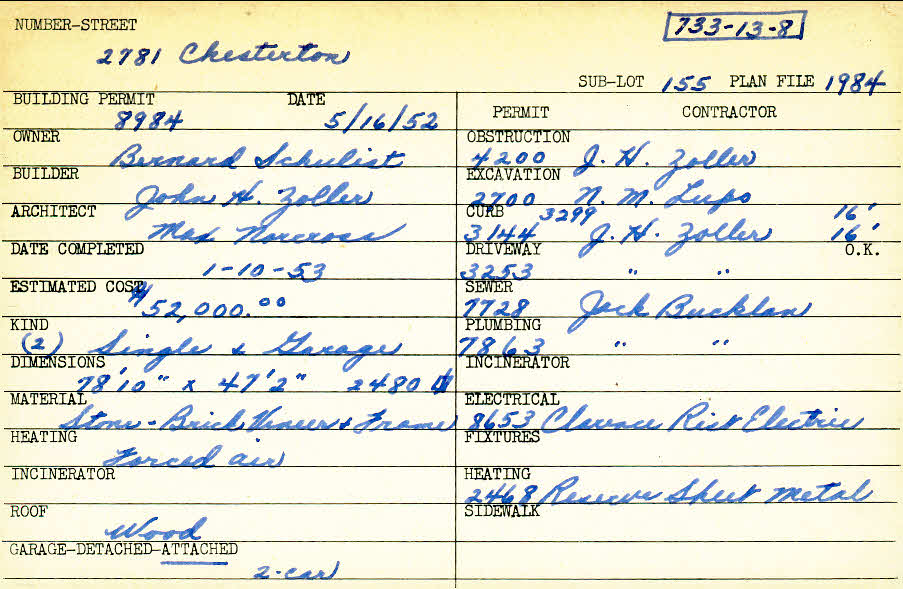 NUMBER-STREET
733-13-8
2781 Chesterton
SUB-LOT 155 PLAN FILE 1984
BUILDING PERMIT DATE
8984 5/16/52
PERMIT CONTRACTOR
OWNER
Bernard Schulist
BUILDER
John H. Zoller
ARCHITECT
Max Norcross
DATE COMPLETED
1-10-53
ESTIMATED COST
$52,000.00
KIND
(2) Single & Garage
DIMENSIONS
78'10" x 47'2" 2480
MATERIAL
Stone-Brick Veneer & Frame
HEATING
Forced air
INCINERATOR
ROOF
Wood
GARAGE-DETACHED-ATTACHED
2-car
OBSTRUCTION
4200 J. H. Zoller
EXCAVATION
2700 N. M. Lupo
CURB 3299 16'
3144 J. H. Zoller 16'
DRIVEWAY O.K.
3253 " "
SEWER
7728 Jack Bucklan
PLUMBING
7863 " "
INCINERATOR
ELECTRICAL
8653 Clarence Rist Electric
FIXTURES
HEATING
2468 Reserve Sheet Metal
SIDEWALK